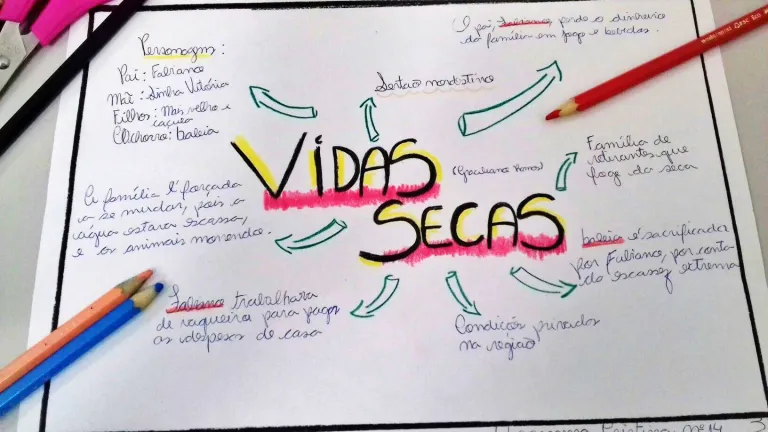 Personagens:
Pai: Fabiano
Mãe: Sinha Vitória
Filhos: Mais velho e
caçula
Cachorro: baleia
Sertão nordestino
O pai, Fabiano, perde o dinheiro
da família em jogo e bebidas.
VIDAS
SECAS
(Graciliano Ramos)
Família de
retirantes que
foge da seca
A família é forçada
a se mudar, pois a
água estava escassa,
e os animais morrendo.
baleia é sacrificada
por Fabiano, por conta
da escassez extrema
Fabiano trabalhava
de vaqueiro para pagar
as despesas de casa
Condições
na região
Cristina nº 14